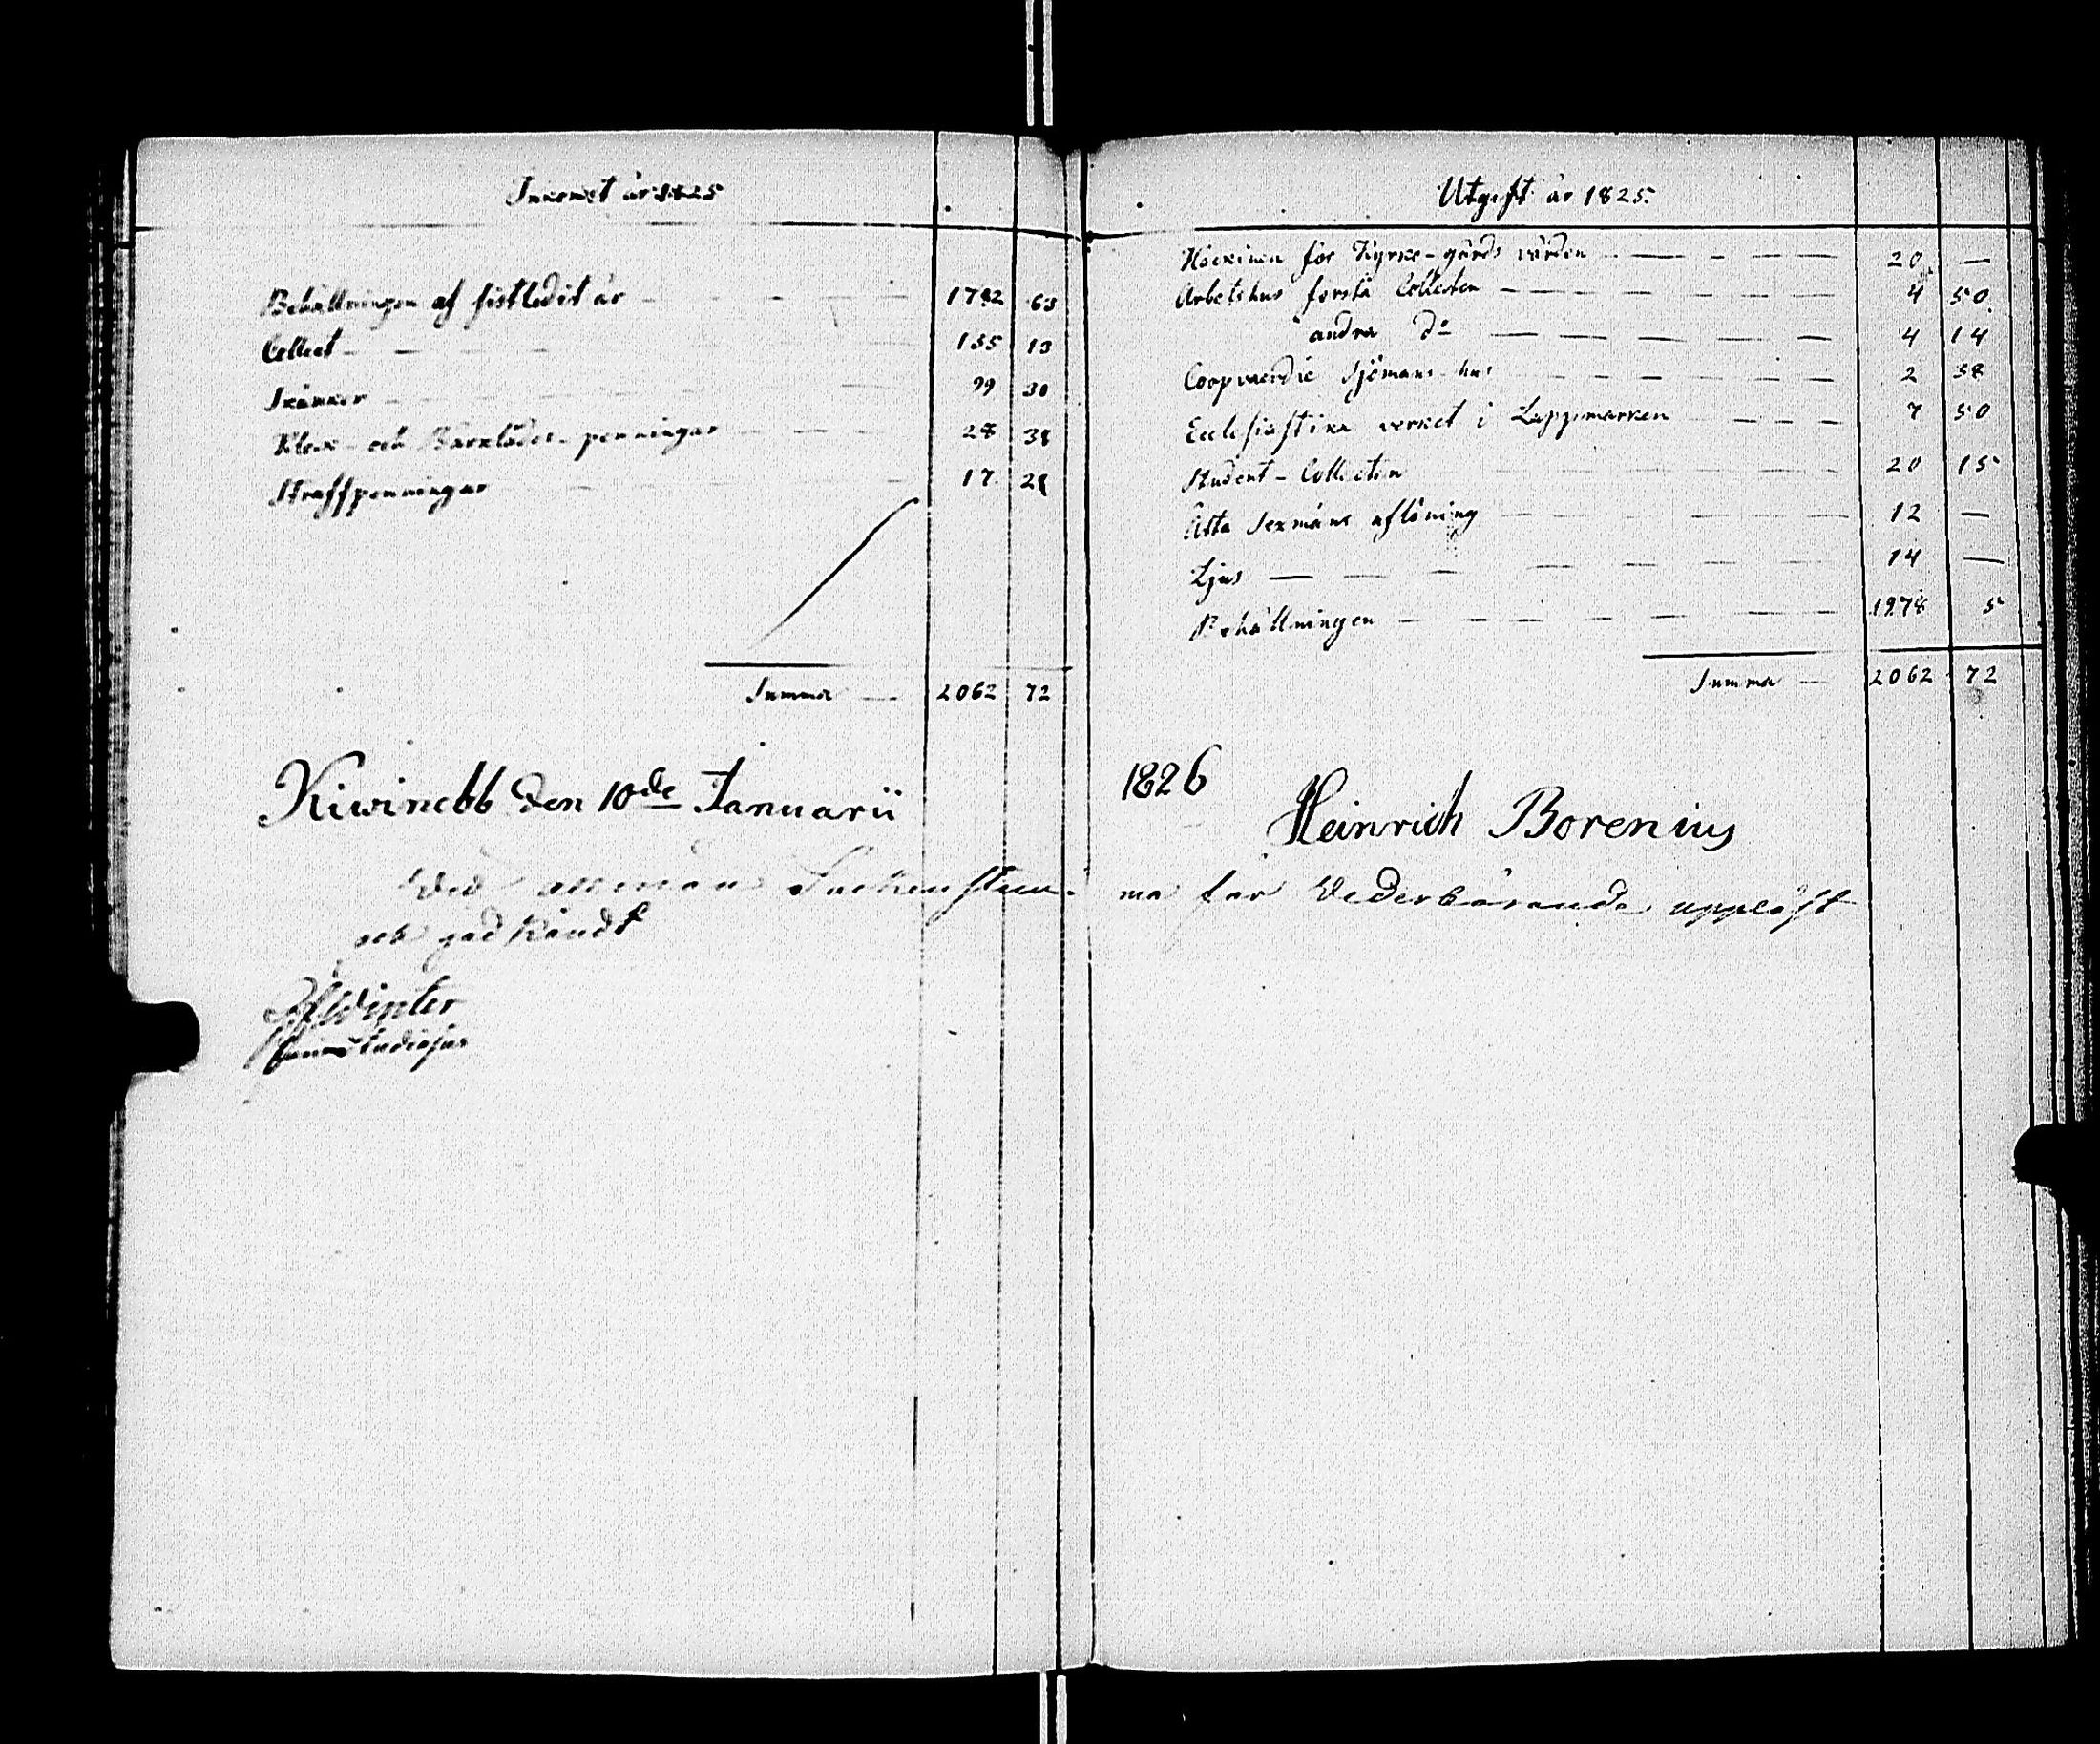 Inkomst år 1825
Behållningen af sistledit år 1782 63
Collect 135 13
Skänker 99 30
Klock- och Bårklädes-penningar 28 38
Straffpenningar 17 24
Summa 2062 72
Kiwinebb den 10de Januarii
Wid allmän Sockenstem-
och godkändt
Winter
Utgift år 1825.
för Kyrko-gårds vården 20 —
Arbetshus första Collecten 4 50
andra do 4 14
Coopvaerdie Sjömans-hus 2 38
Ecclesiastika verket i Lappmarken 7 50
Student-Collecten 20 15
Åtta Sexmäns aflöning 12 —
Ljus 14 —
Behållningen 1978 5
Summa 2062 72
1826
Heinrich Borenius
ma för Vederbörande uppläst